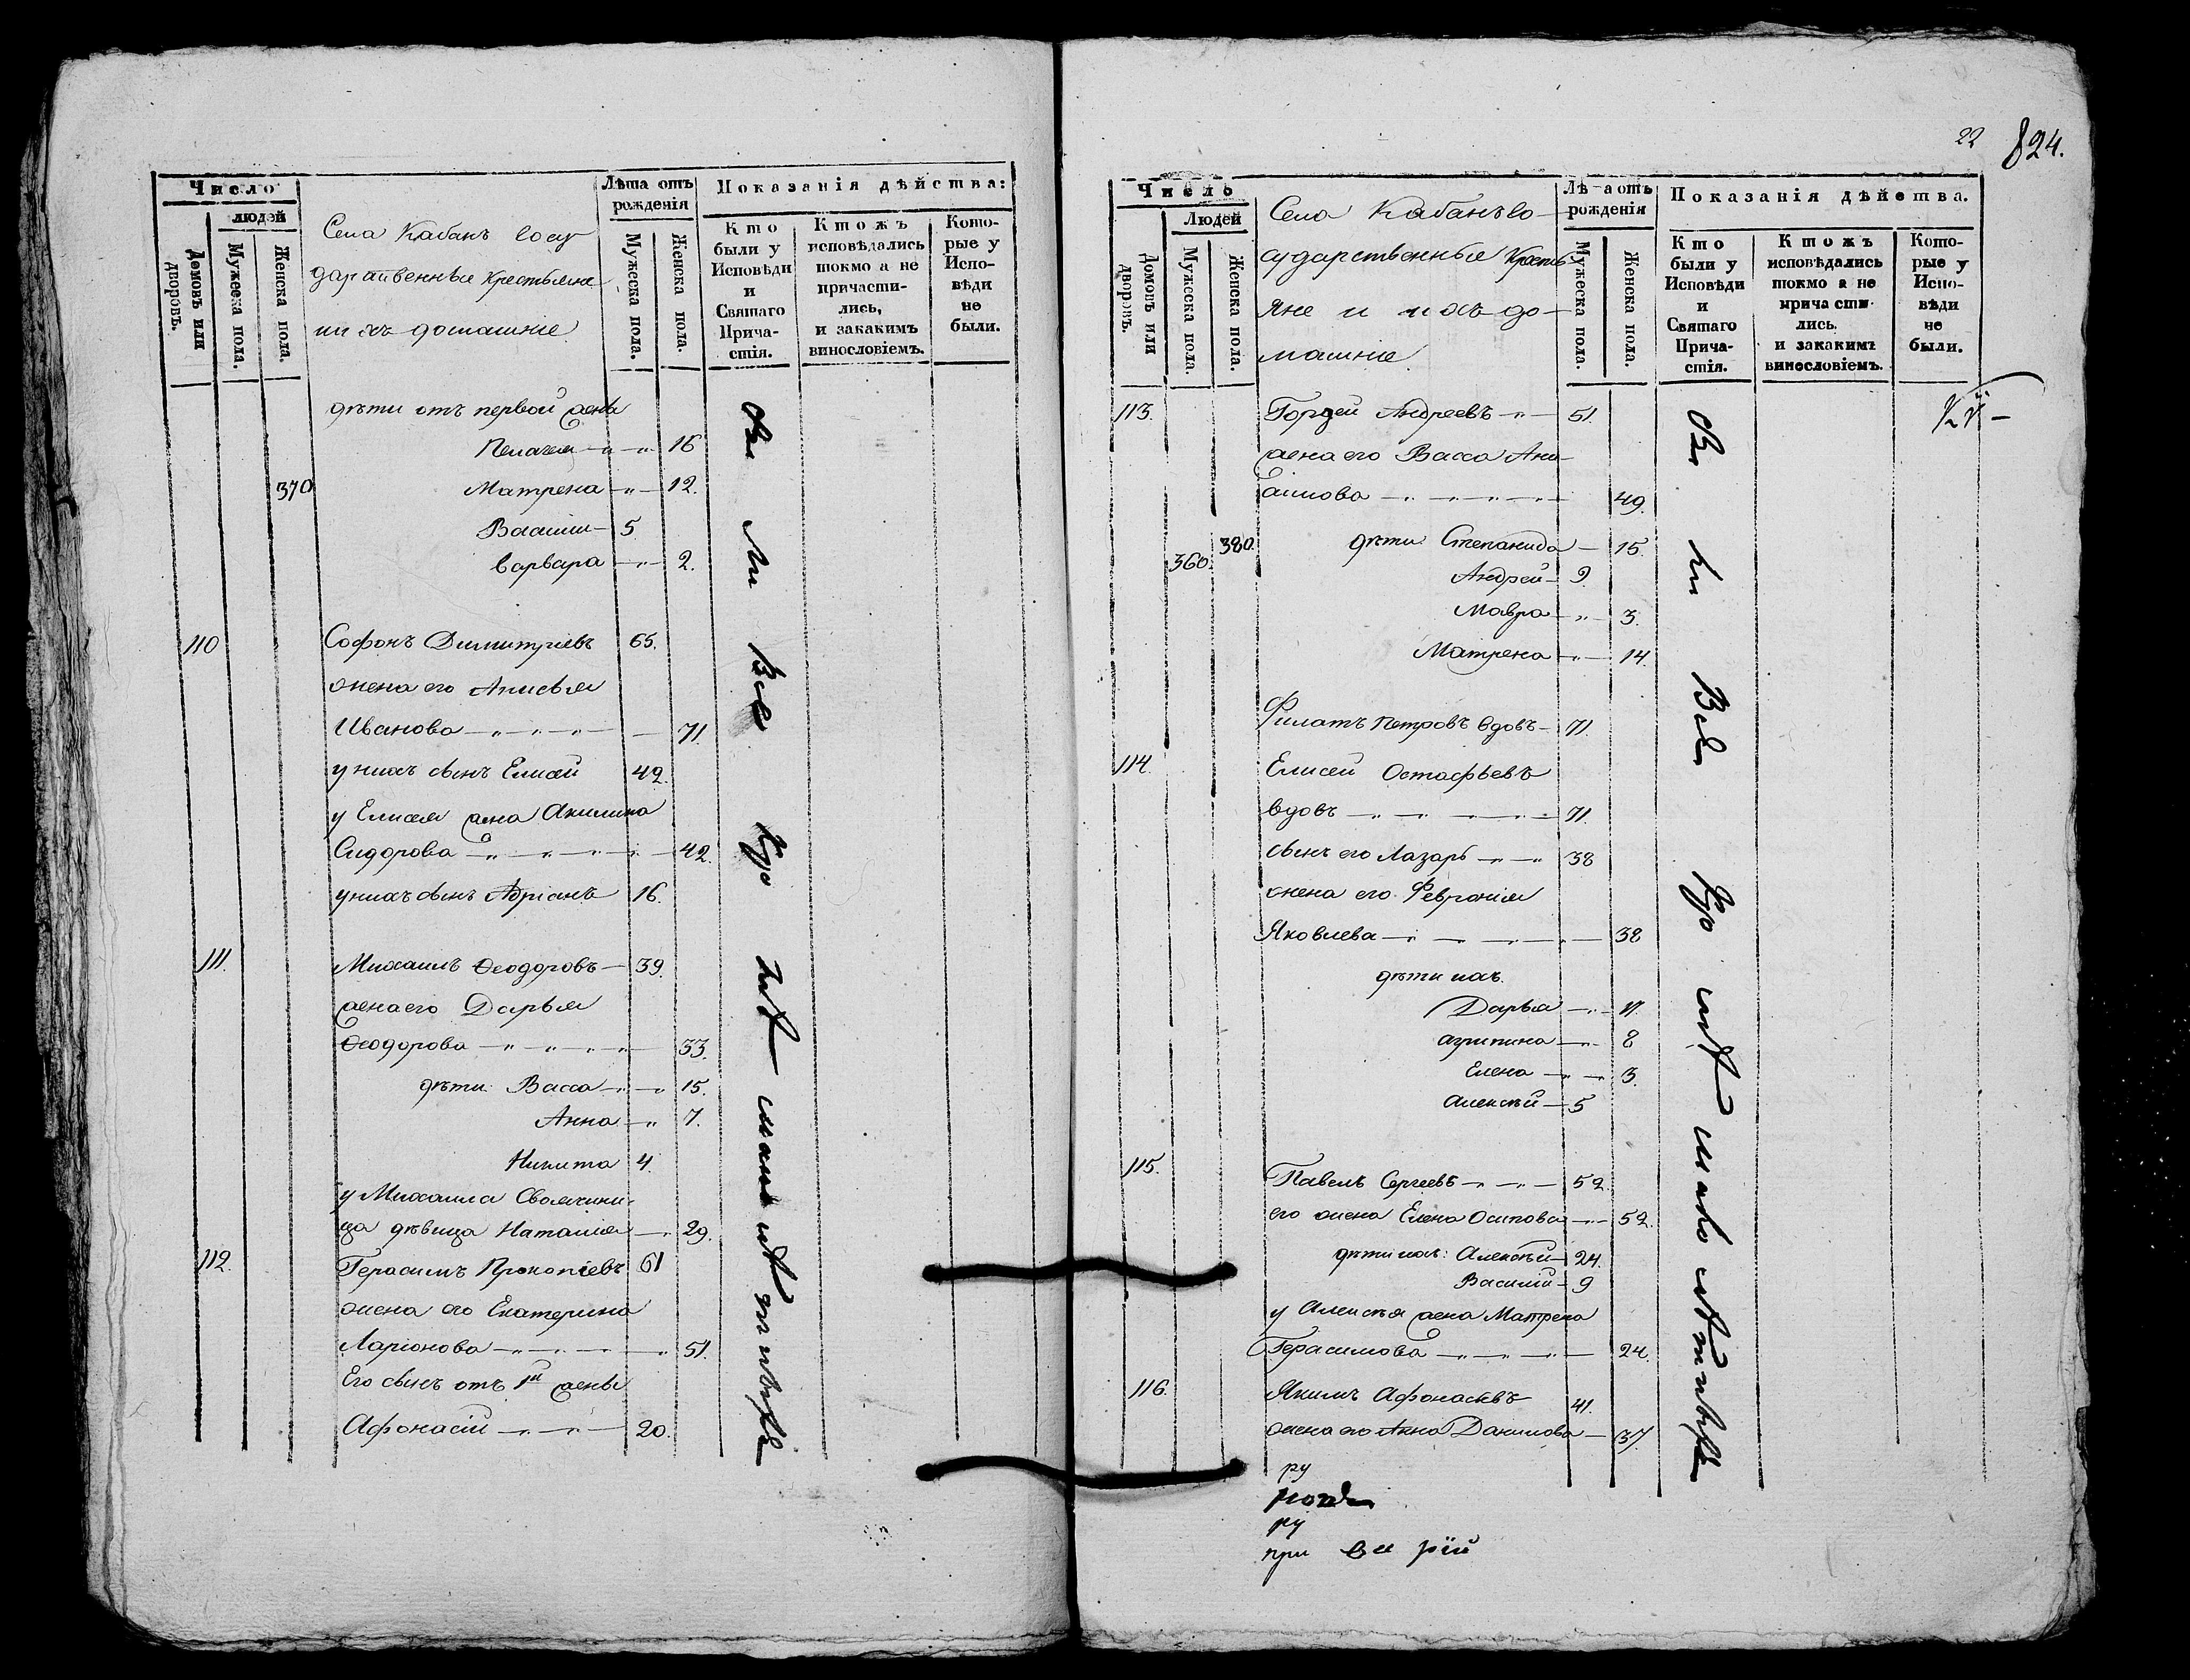 Число
людей
Домовъ или дворовъ.
Мужеска пола.
Женска пола.
Села Кабанъ госу
дарственные Крестьяне
и ихъ домашніе
Лѣта отъ
рожденія
Мужеска пола.
Женска пола.
Показанія дѣйства:
Кто
были у
Исповѣди
и
Святаго
Прича-
стія.
Ктожъ
исповѣдались
токмо а не
причасти-
лись,
и закакимъ
винословіемъ.
Кото-
рые у
Испо-
вѣди
не
были.
дѣти отъ первой жены
Пелагея 16
370 Матрена 12.
Василій 5
Варвара 2.
110 Софонъ Димитріевъ 65.
жена его Анисья
Иванова 71.
у нихъ сынъ Елисей 42.
у Елисея жена Акилина
Сидорова 42.
у нихъ сынъ Адріанъ 16.
111. Михаилъ Ѳеодоровъ 39.
жена его Дарья
Ѳеодорова 33.
дѣти Васса 15.
Анна 7.
Никита 4.
у Михаила Своячини-
ца дѣвица Наталия 29.
112. Герасимъ Прокопіевъ 61
жена его Екатерина
Ларіонова 51.
Его сынъ отъ 1й жены
Афонасій 20.
22 824.
Число
Людей
Домовъ или дворовъ.
Мужеска пола.
Женска пола.
Села Кабанъ го
сударственные Кресть
яне и ихъ до
машніе.
Лѣта отъ
рожденія
Мужеска пола.
Женска пола.
Показанія дѣйства.
Кто
были у
Исповѣди
и
Святаго
Прича-
стія.
Ктожъ
исповѣдались
токмо а не
причасти-
лись.
и закакимъ
винословіемъ.
Кото-
рые у
Испо-
вѣди
не
были.
113. Гордей Андреевъ 51.
жена его Васса Ани-
симова 49.
380. дѣти Степанида 15.
360. Андрей 9.
Мавра 3.
Матрена 14.
Филатъ Петровъ вдовъ 71.
114. Елисей Остафьевъ
вдовъ 71.
сынъ его Лазарь 38
жена его Февронія
Яковлева 38
дѣти ихъ.
Дарья 11.
Агрипина 8
Елена 3.
Алексѣй 5
115. Павелъ Сергеевъ 52.
его жена Елена Осипова 52.
дѣти ихъ: Алексѣй 24.
Василій 9
у Алексѣя жена Матрена
Герасимова 24.
116. Якимъ Афонасьевъ 41.
жена его Анна Данилова 37
ру
ру
при